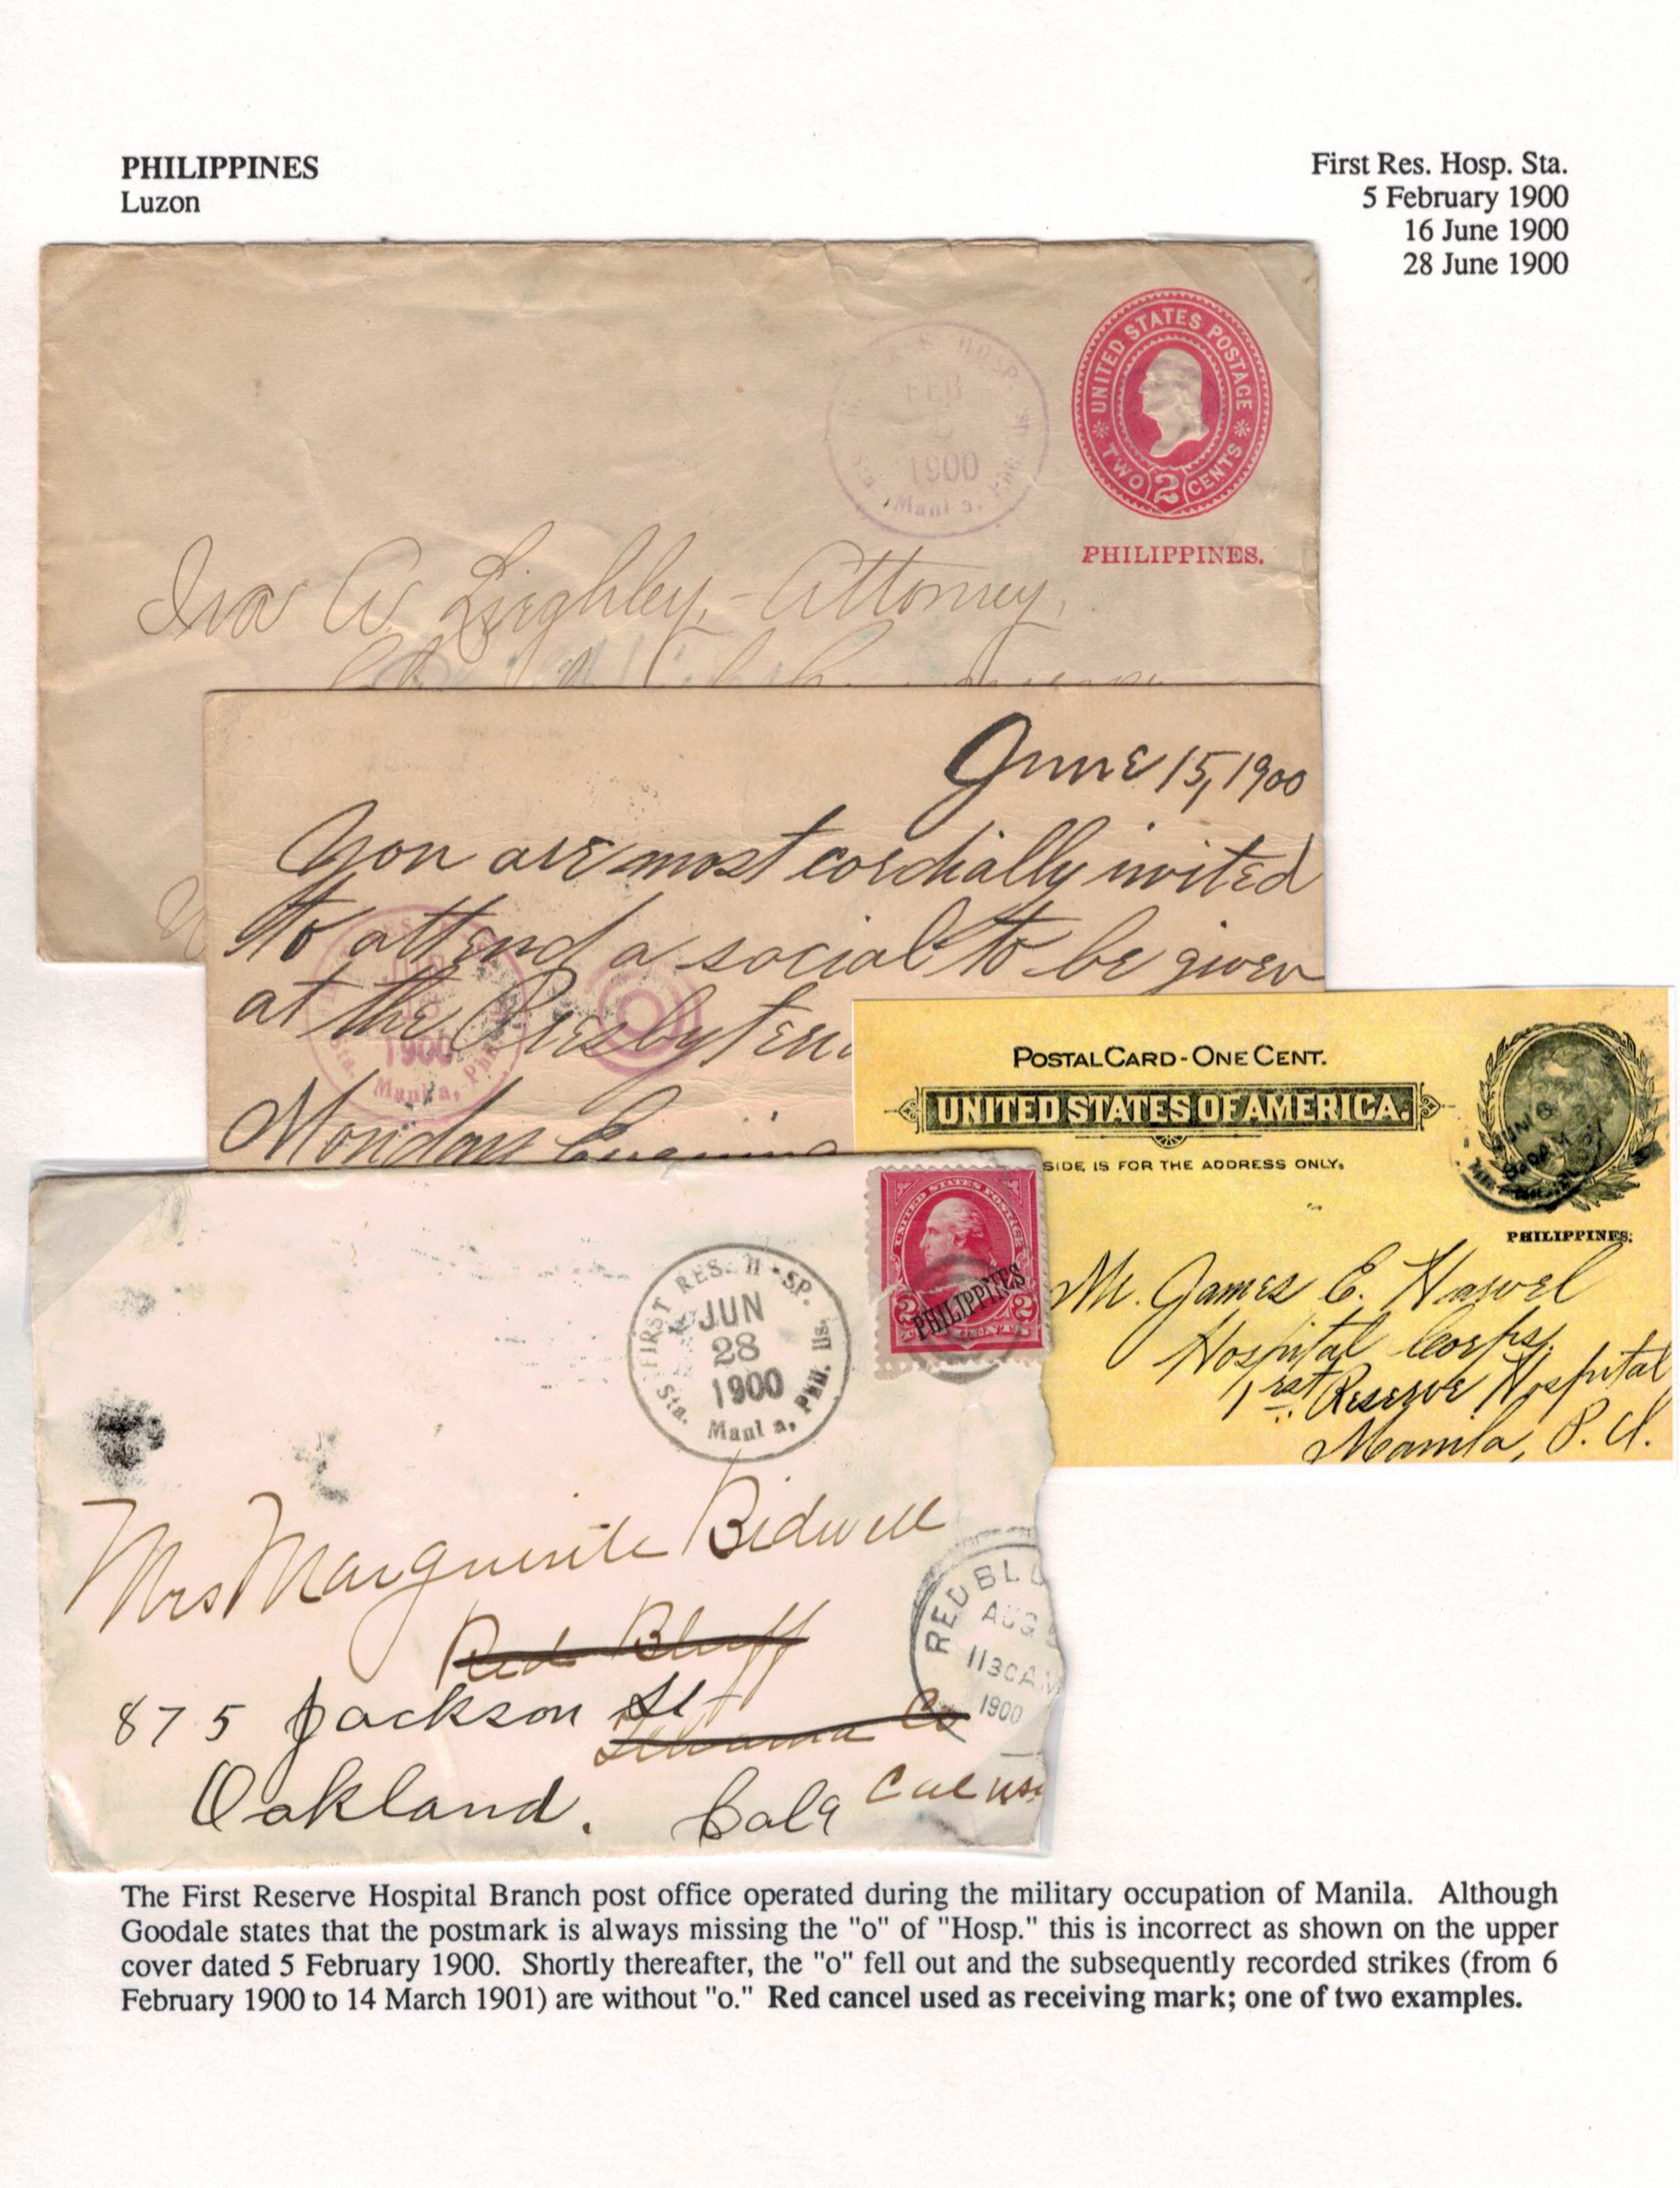 PHILIPPINES
Luzon
First Res. Hosp. Sta.
5 February 1900
16 June 1900
28 June 1900
HOSP.
FEB
1900
UNITED STATES POSTAGE
TWO 2 CENTS
PHILIPPINES.
Ira A. Lieghley,- Attorney,
June 15, 1900
You are most cordially invited
to attend a social to be given
at the Presbyteri
Monday Evening
JUN
16
1900
Sta. Mani a, Phil
POSTAL CARD - ONE CENT.
UNITED STATES OF AMERICA.
SIDE IS FOR THE ADDRESS ONLY.
PHILIPPINES.
Mr. James E.
Hospital Corps,
1rst Reserve Hospital
Manila, P. I.
UNITED STATES POSTAGE
PHILIPPINES
2 2
FIRST RES. H SP.
JUN
28
1900
Sta. Mani a, Phil. Is.
Mrs Marguerite Bidwell
Red Bluff
875 Jackson St
Tehama Co
Oakland. Cala
Cal USA
RED BLU
AUG
1130AM
1900
The First Reserve Hospital Branch post office operated during the military occupation of Manila. Although
Goodale states that the postmark is always missing the "o" of "Hosp." this is incorrect as shown on the upper
cover dated 5 February 1900. Shortly thereafter, the "o" fell out and the subsequently recorded strikes (from 6
February 1900 to 14 March 1901) are without "o." Red cancel used as receiving mark; one of two examples.